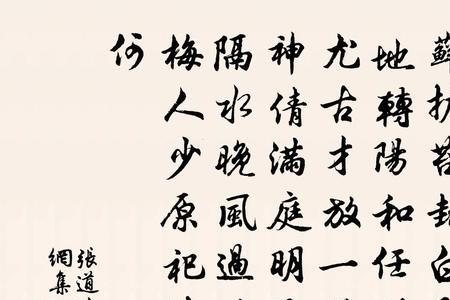 蘚苔封白
地轉陽和任
尤古才放一
神倩滿庭明
隔水晚風過
梅人少原祀
何
張道
網集